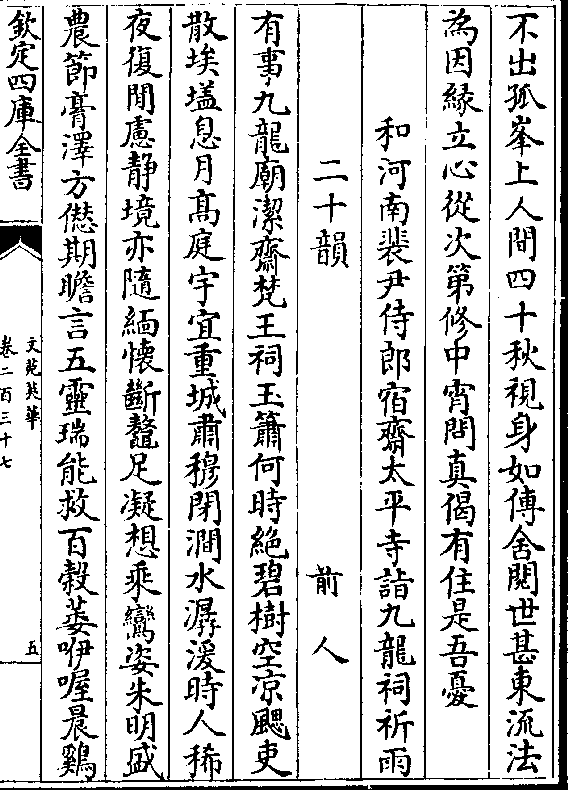 不出孤峯上人間四十秋視身如傳舍閱世甚東流法
為因緣立心從次第修中宵問真偈有住是吾憂
和河南裴尹侍郎宿齋太平寺詣九龍祠祈雨
二十韻 前人
有事九龍廟潔齋梵王祠玉簫何時絶碧樹空凉颸吏
散埃壒息月髙庭宇宜重城肅穆閉澗水潺湲時人稀
夜復閒慮静境亦隨緬懷斷鼇足凝想乘鸞姿朱明盛
農節膏澤方愆期瞻言五靈瑞能救百穀萎咿喔晨鷄
欽定四庫全書
文苑英華
卷二百三十七
五